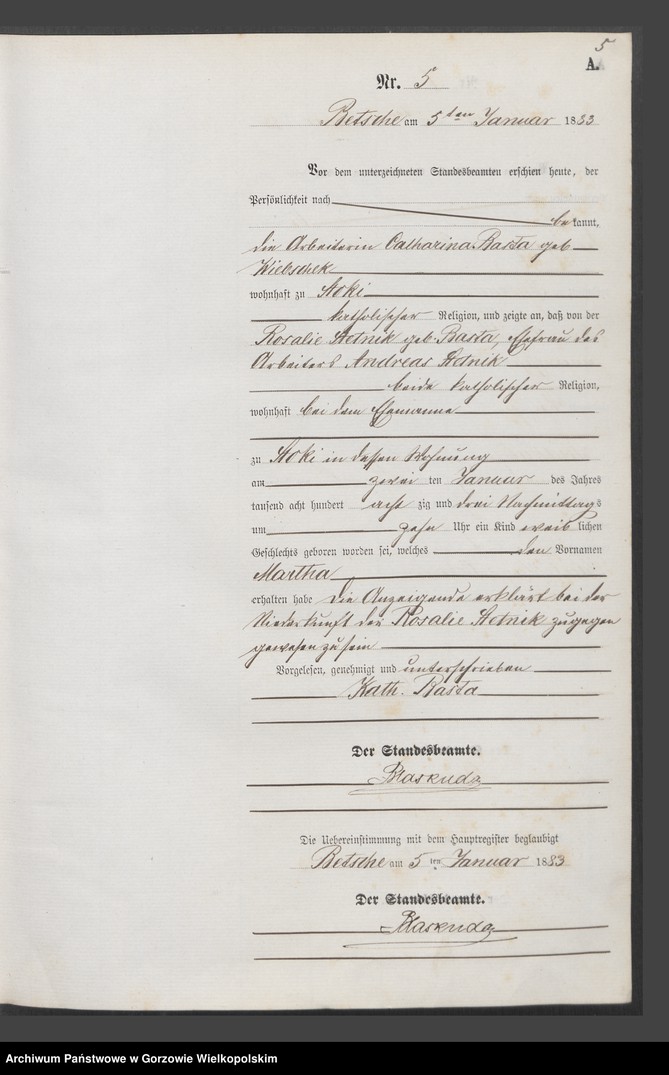 5
A.
Nr. 5
Betsche am 5ten Januar 1883
Vor dem unterzeichneten Standesbeamten erschien heute, der
Persönlichkeit nach
bekannt,
die Arbeiterin Catharina Basta geb
wohnhaft zu Stoki
katholischer Religion, und zeigte an, daß von der
Rosalie Stetnik geb. Basta, Ehefrau des
Arbeiters Andreas Stetnik
beide katholischer Religion,
wohnhaft bei dem Ehemanne
zu Stoki in dessen Wohnung
am zwei ten Januar des Jahres
tausend acht hundert acht zig und drei Nachmittags
um zehn Uhr ein Kind weib lichen
Geschlechts geboren worden sei, welches den Vornamen
Martha
erhalten habe Die Anzeigende erklärt bei der
Niederkunft der Rosalie Stetnik zugegen
gewesen zu sein
Vorgelesen, genehmigt und unterschrieben
Kath. Basta
Der Standesbeamte.
Die Uebereinstimmung mit dem Hauptregister beglaubigt
Betsche am 5ten Januar 1883
Der Standesbeamte.
Archiwum Państwowe w Gorzowie Wielkopolskim